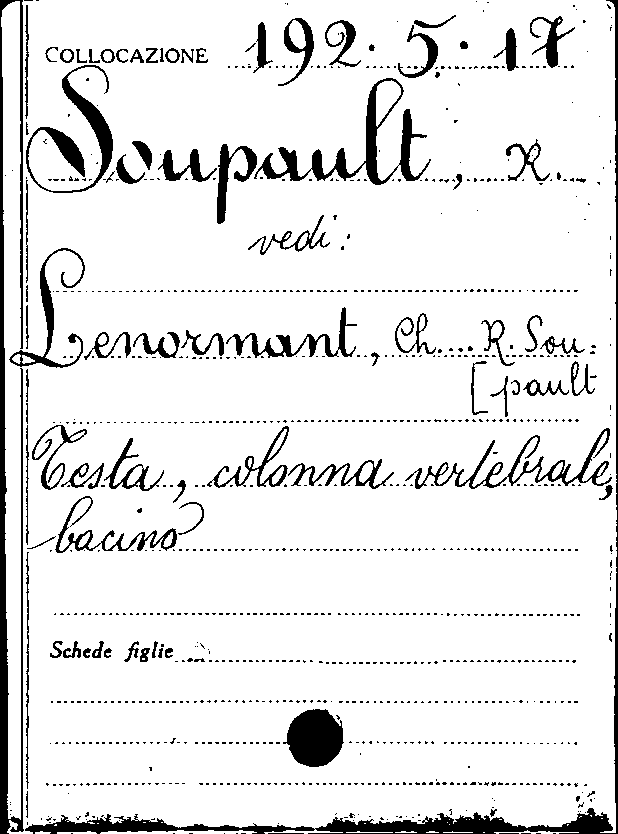 COLLOCAZIONE 192.5.17
Soupault, R.
vedi:
Lenormant, Ch.... R. Sou=
[pault
Testa, colonna vertebrale,
bacino
Schede figlie